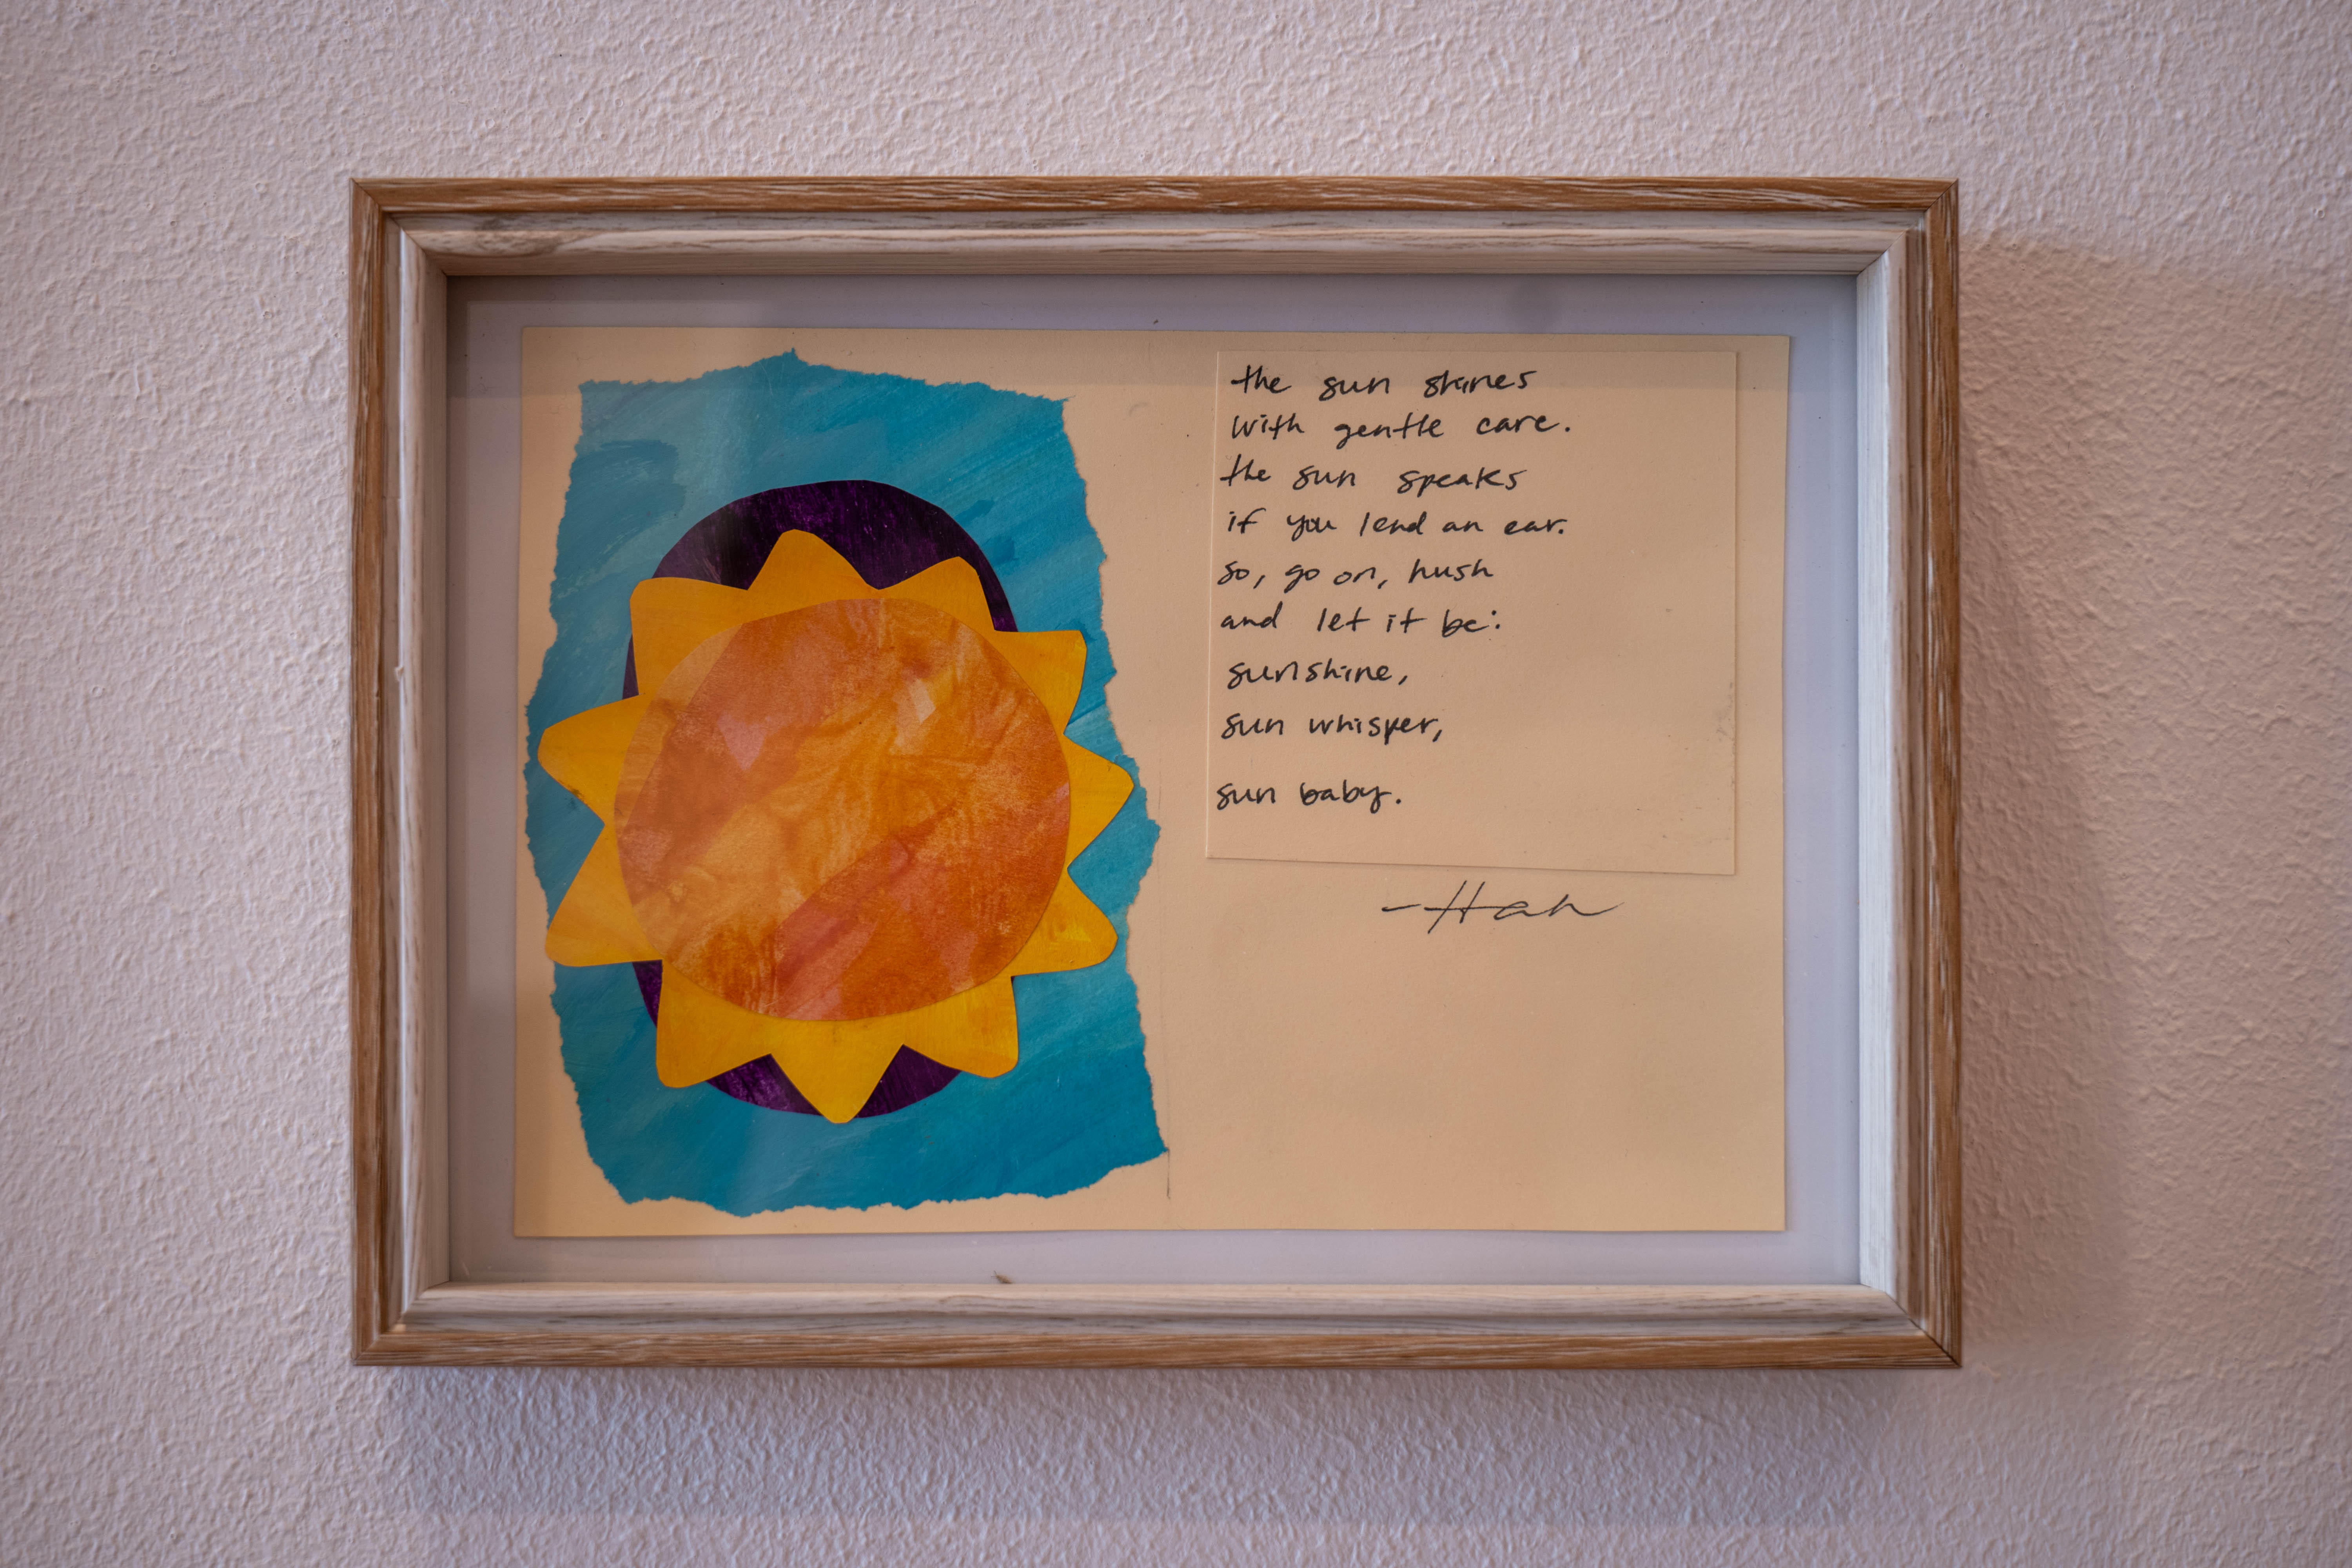 the sun shines
with gentle care.
the sun speaks
if you lend an ear.
so, go on, hush
and let it be:
sunshine,
sun whisper,
sun baby.
-Hah